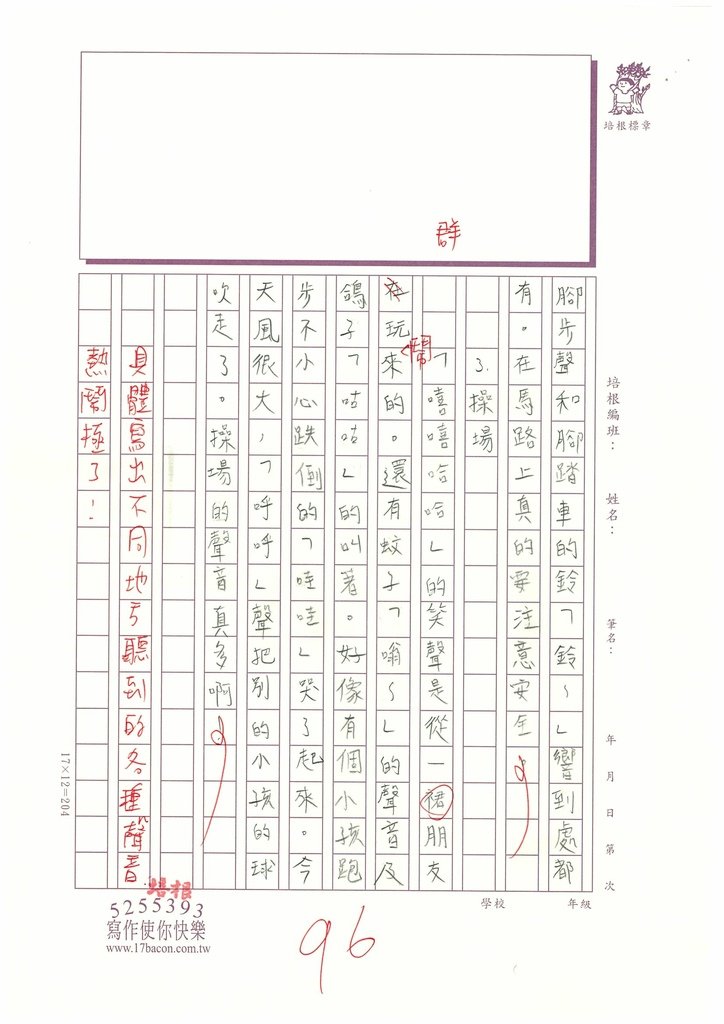 培根標章
群
培根編班： 姓名： 筆名： 年 月 日 第 次
腳步聲和腳踏車的鈴「鈴～」響到處都
有。在馬路上真的要注意安全
3.操場
「嘻嘻哈哈」的笑聲是從一裙朋友
在玩來的。還有蚊子「嗡～」的聲音及
鬧
鴿子「咕咕」的叫著。好像有個小孩跑
步不小心跌倒的「哇哇」哭了起來。今
天風很大，「呼呼」聲把別的小孩的球
吹走了。操場的聲音真多啊
具體寫出不同地方聽到的各種聲音
熱鬧極了！
17×12=204
學校 年級
培根
5255393
寫作使你快樂
www.17bacon.com.tw
96